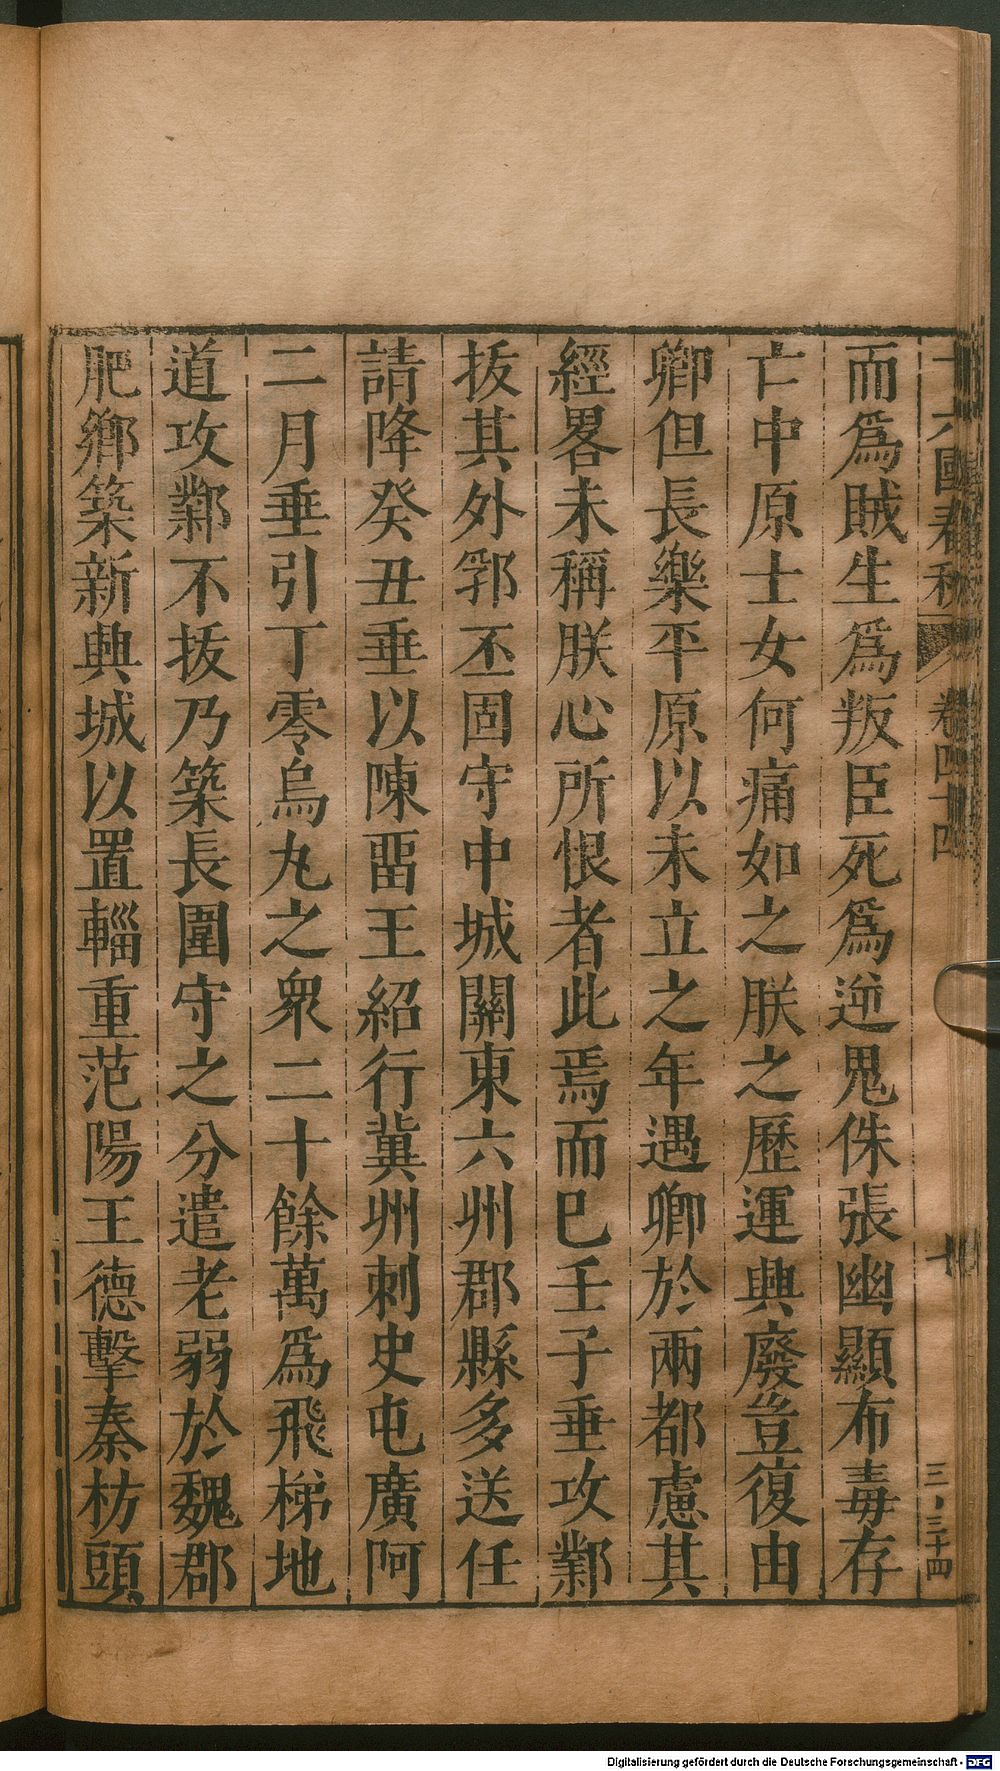 十六國春秋 卷四十四 三、三十四
而爲賊生爲叛臣死爲逆鬼侏張幽顯布毒存
亡中原士女何痛如之朕之歷運興廢豈復由
卿但長樂平原以未立之年遇卿於兩都慮其
經畧未稱朕心所恨者此焉而已壬子垂攻鄴
拔其外郛丕固守中城關東六州郡縣多送任
請降癸丑垂以陳畱王紹行冀州刺史屯廣阿
二月垂引丁零烏丸之衆二十餘萬爲飛梯地
道攻鄴不拔乃築長圍守之分遣老弱於魏郡
肥鄉築新興城以置輜重范陽王德擊秦枋頭
Digitalisierung gefördert durch die Deutsche Forschungsgemeinschaft - DFG